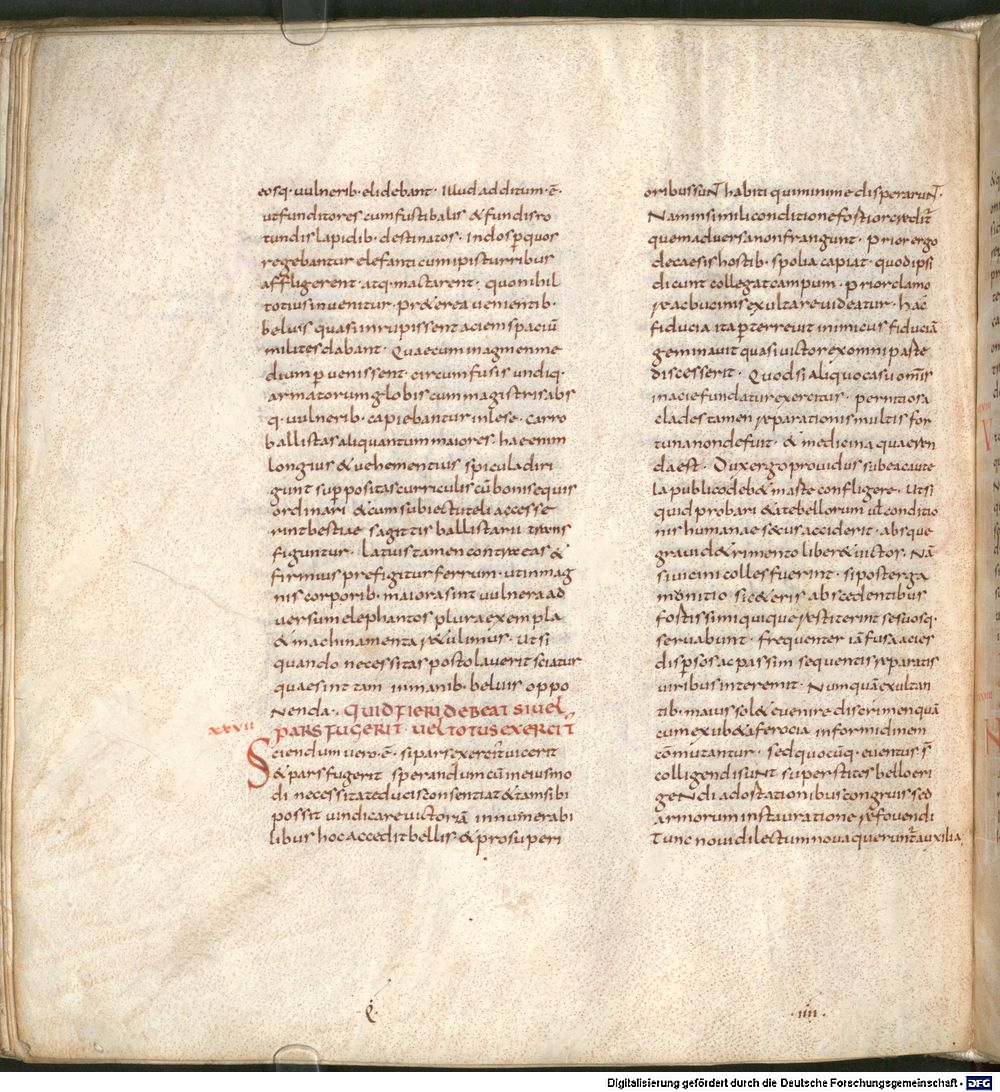 eosq· vulnerib· elidebant· Illud additum· ē·
ut funditores cum fustibalis & fundis ro
tundis lapidib· destinatos· Indos p quos
regebantur elefanti cum ipis turribus
affligerent· atq· mactarent· quo nihil
totius invenitur· Pr&erea venientib·
beluis quasi inrupissent aciem spaciū
milites dabant· Quae cum in agmen me
dium pvenissent· circumfusis undiq·
armatorum globis cum magistris abs
q· vulnerib· capiebantur inlese· Carro
ballistas aliquantum maiores· hae enim
longius & vehementius spicula diri
gunt suppositas curriculis cū bonis equis
ordinari & cum sub iectu teli accesse
rint bestiae sagittis ballistarii trans
figuntur· Latius tamen contra eas &
firmius prefigitur ferrum· ut in mag
nis corporib· maiora sint vulnera ad
versum elephantos plura exempla
& machinamenta r&ulimus· Ut si
quando necessitas postolaverit sciatur
quae sint tam inmanib· beluis oppo
nenda· QUID FIERI DEBEAT SI UEL
XXVII PARS FUGERIT· UEL TOTUS EXERCIT
Sciendum vero· ē· si pars exercit vicerit
& pars fugerit sperandum cū in eiusmo
di necessitate ducis consentia & tam sibi
possit vindicare victoriā innumerabi
libus hoc accedit bellis & pro superi
oribus sunt habiti qui minime disperarunt·
Nam in simili conditione fostior credit
quem adversa non frangunt· Prior ergo
de caesis hostib· spolia capiat· quod ipsi
dicunt collegat campum· Prior clamo
re ac bucinis exultare videatur· hac
fiducia ita pterreuit inimicus fiduciā
geminavit quasi victor ex omni paste
discesserit· Quod si aliquo casu omis
in acie fundatur exercitus· pernitiosa
clades tamen reparationis multis for
tuna non defuit· & medicina quaeren
da est· Dux ergo providus sub ea caute
la publico deb& maste confligere· Ut si
quid probari &ate bellorum ut conditio
nis humanae secus acciderit· absque
gravi d&rimento liber& victor· Nā
si vicini colles fuerint· si post erga
munitio sic & eris abscedentibus
fostissimi quique restiterint se suosq·
servabunt· frequenter iā fusa acies
dispsos ac passim sequentis reparatis
viribus interemit· Numquā exultan
tib· maius sol& evenire discrimen quā
cum ex sub&a ferocia in formidinem
cōmutantur· Sed quocūq· eventus s̄
colligendi sunt superstites bello eri
gendi adostationibus congruis sed
armorum instauratione refovendi
Tunc novi dilectum nova querunt auxilia
Q·
·IIII·
Digitalisierung gefördert durch die Deutsche Forschungsgemeinschaft - DFG